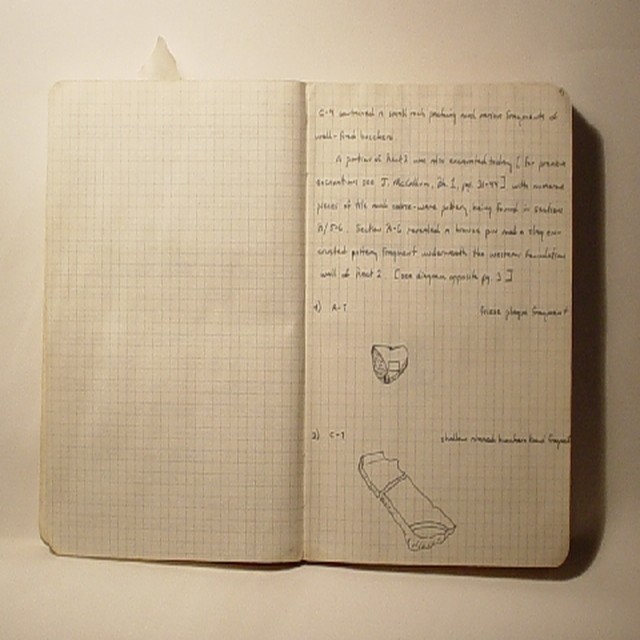 contained a small rock packing and various fragments of
well-fired bucchero.
A portion of Hut 2 was also excavated today [for previous
excavations see J. McCollum, Bk 1, pg. 31-44] with numerous
pieces of tile and coarse-ware pottery being found in sections
A/5-6. Section A-6 revealed a bronze pin and a slag en-
crusted pottery fragment underneath the western foundation
wall of Hut 2. [see diagram opposite pg. 3]
1) A-7 frieze plaque fragment
2) C-7 shallow rimmed bucchero bowl fragment